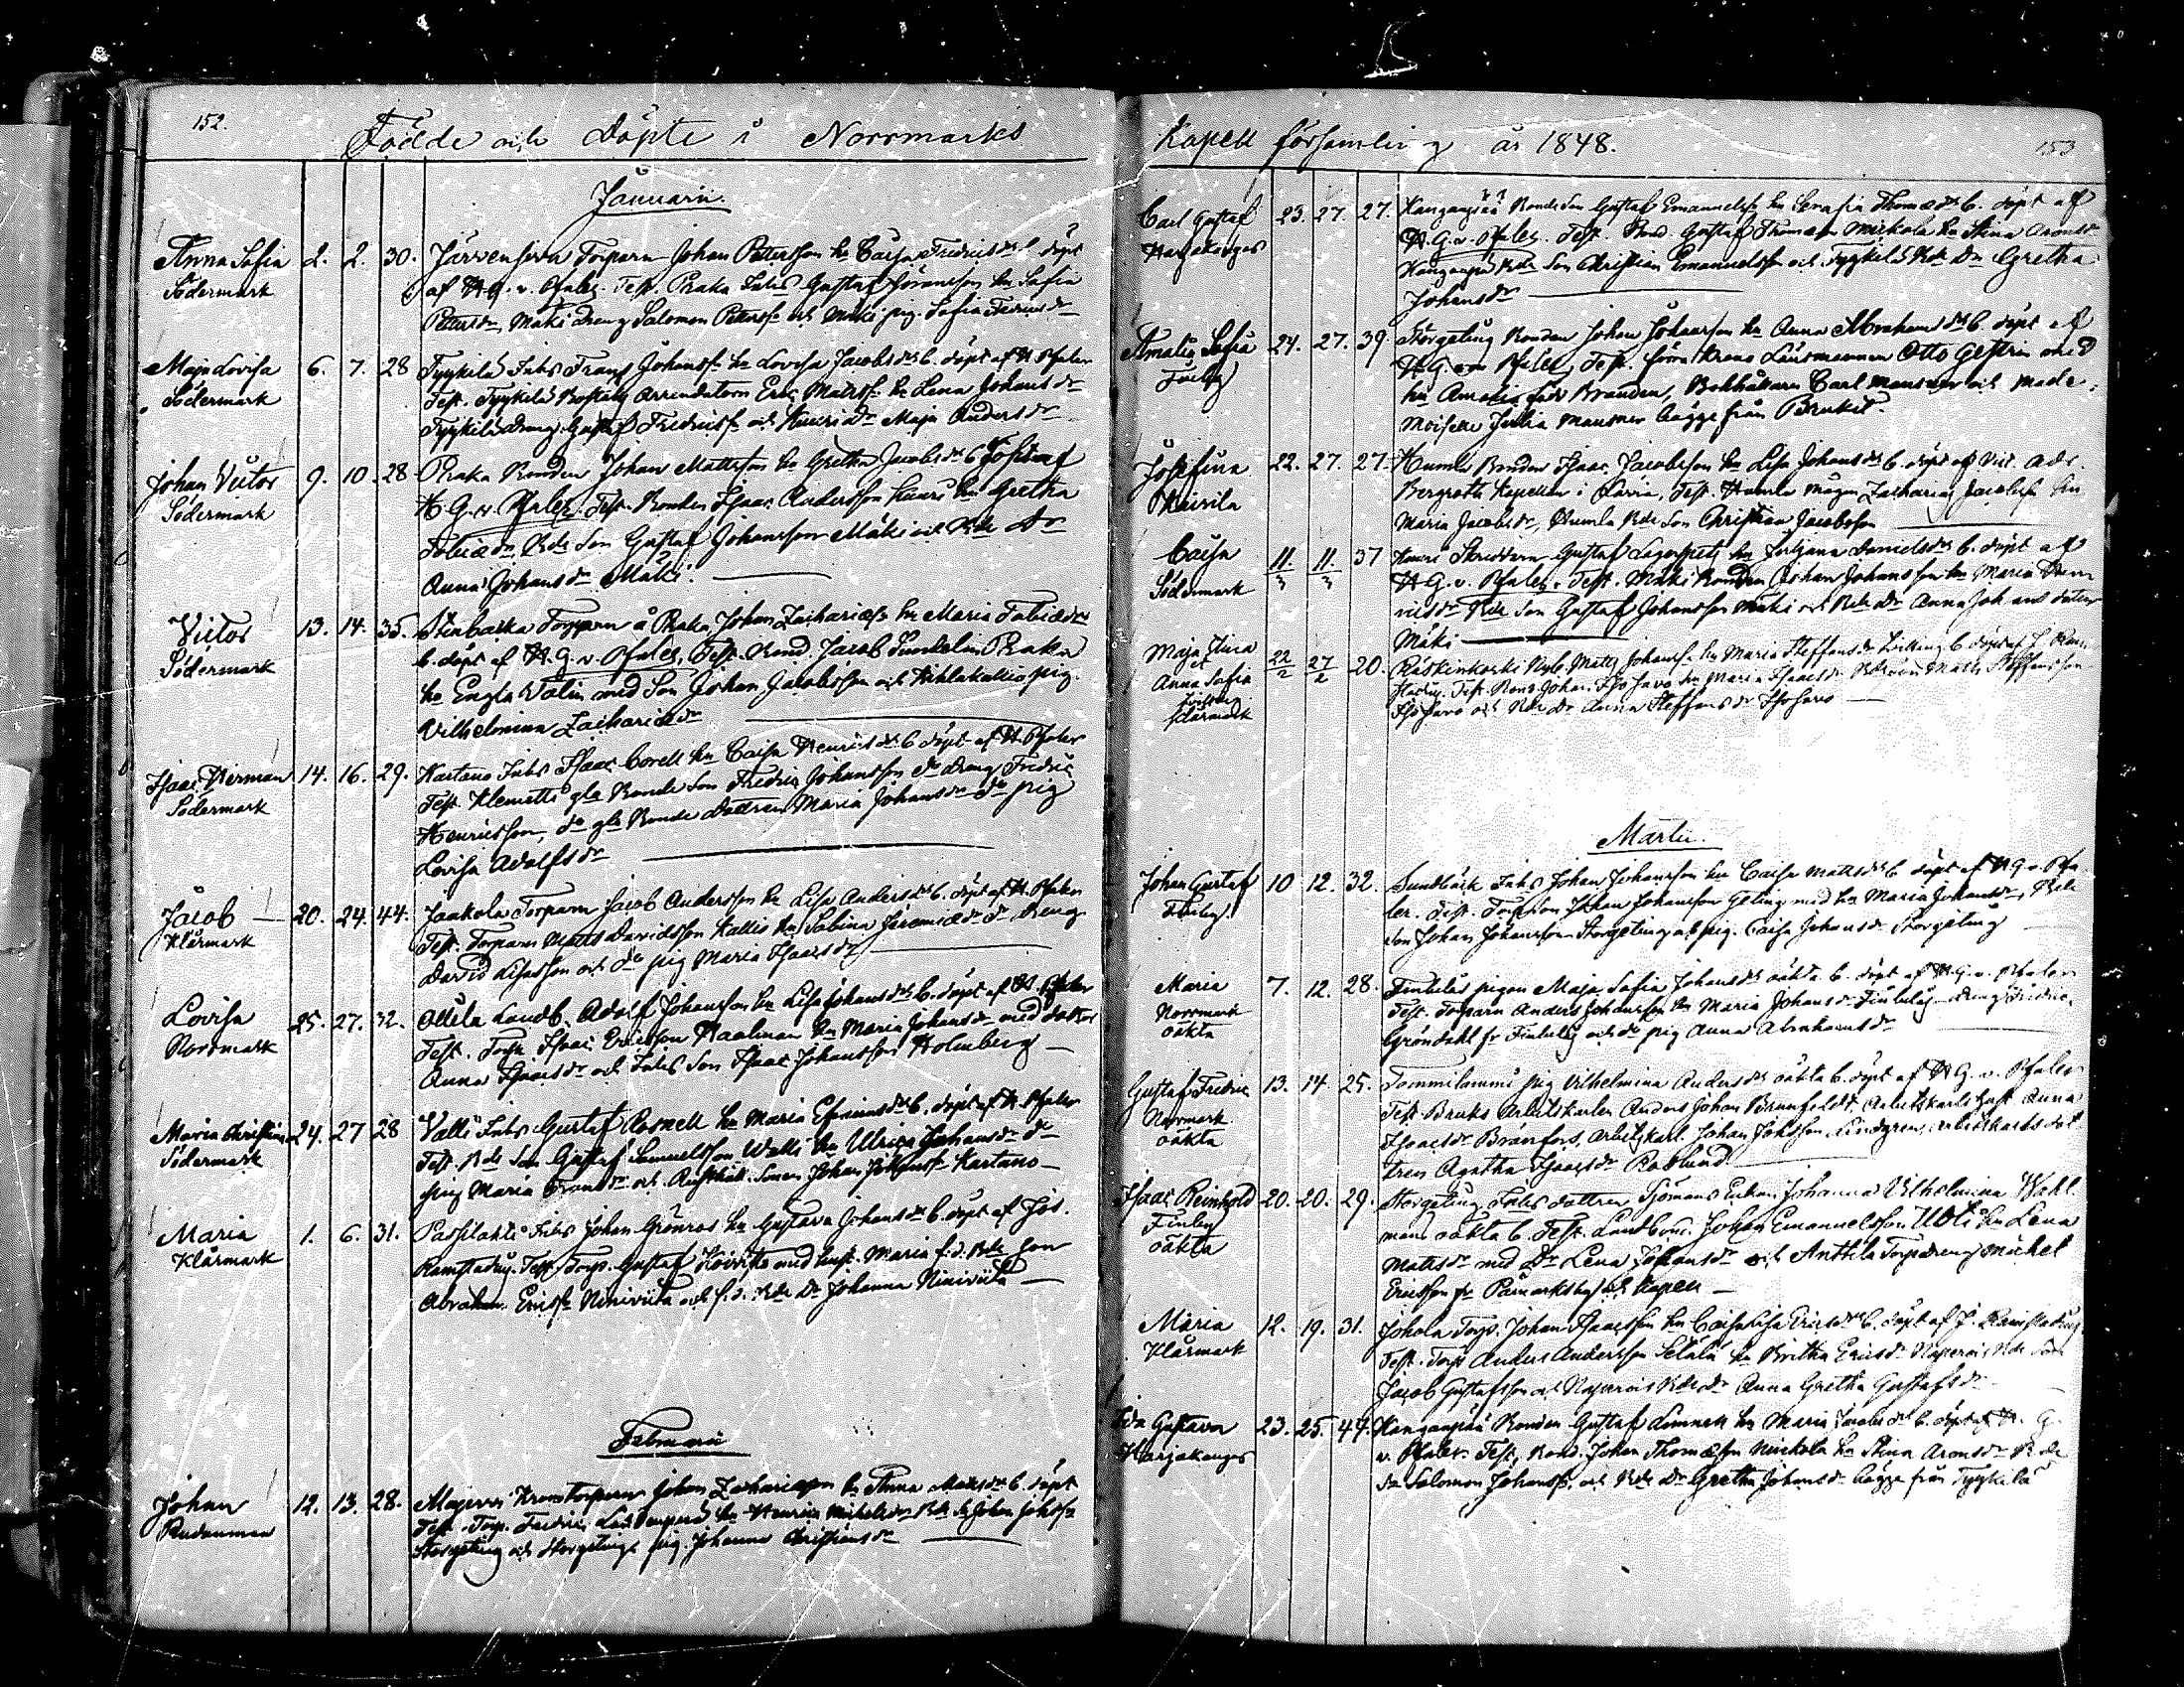 152.
Födde och Döpte i Norrmarks
Januarii.
Anna Sofia
Södermark
2. 2. 30. Järvensivu Torparn Johan Pettersson hu Caisa Fredricsdr b. döpt
af H. G. v. Pfaler. Test. Praka Inhs Gustaf hu Sofia
Pettersdr, Mäki dreng Salomon Petterss. och Mäki pig. Sofia
Maja Lovisa
Södermark
6. 7. 28 Tyykilä Inhs Frans Johanss. hu Lovisa Jacobsdr b. döpt af H. Pfaler
Test. Tyykilä Arrendatorn Eric Matss. hu Lena Johansdr
Tyykilä dreng Gustaf Fredricss. och Maja Andersdr
Johan Victor
Södermark
9. 10. 28 Praka Bonden Johan Mattsson hu Gretha Jacobsdr b. döpt af
H. G. v. Pfaler. Test. Bonden Isaac Andersson hu Gretha
Tobiædr, Bde Son Gustaf Johansson Mäki och Bde Dr
Anna Johansdr Mäki.
Victor
Södermark
13. 14. 35. Torparn å Praka Johan Zachariæss. hu Maria Tobiædr
b. döpt af H. G. v. Pfaler, Test. Bond. Jacob Praka
hu Engla Valin med Son Johan Jacobsson och pig.
Vilhelmina Zachariædr
Isaac Herman
Södermark
14. 16. 29. Kartano Inhs Isaac Corell hu Caisa Henricsdr b döpt af H. Pfaler
Test. Klemetti gla Bonde Son Fredric Johansson do dreng Fredric
Henricsson, do gla Bonde dottren Maria Johansdr do pig
Lovisa Adolfsdr
Jacob
Klåsmark
20. 24. 44. Jaakola Torparn Jacob Andersson hu Lisa Andersdr b. döpt af H. Pfaler
Test. Torparn Matts Davidsson Kallio hu Sabina Jeremiædr do dreng
David och do pig Maria Isaacsdr
Lovisa
Norrmark
25. 27. 32. Ollila Landb. Adolf Johansson hu Lisa Johansdr b. döpt af H. Pfaler
Test. Torp. Isaac Ericsson hu Maria Johansdr med dotter
Anna Isaacsdr och Inhs Son Isaac Johansson Holmberg
Maria Christina
Södermark
24. 27 28 Valli Inhs Gustaf Rosnell hu Maria Efraimsdr b. döpt af H. Pfaler
Test. Bde Son Gustaf Samuelsson Walli hu Ulrica Johansdr do
pig Maria och Sonen Johan Kartano
Maria
Klåsmark
1. 6. 31. Pasilahti Inhs Johan Grönros hu Gustava Johansdr b. döpt af Jos.
Ramstadius. Test. Torp. Gustaf med hust. Maria f. d. Bde Son
Abraham Ericss. Niniviita och f. d. Bde Dr Johanna Niniviita
Februarii
Johan
Rudanmaa
12. 13. 28. Krono Torparn Johan Zachariæsson hu Anna Matsdr b. döpt
Test. Torp. Fredric hu Henrica Michelsdr Bde So Johan Johss.
Storgeting och Storgetings pig. Johanna Christiansdr
Kapell församling år 1848.
153
Carl Gustaf
Harjakangas
23. 27. 27. Kangaspää Bonde Son Gustaf Emanuelss. hu Serafia Thomædr b. döpt af
H. G. v. Pfaler. Test. Bond. Gustaf Thomæson Mickola hu Stina Aronsdr
Kangaspää Bde Son Christian Emanuelsson och Tyykilä Bde Dr Gretha
Johansdr
Amalia Sofia
Finby
24. 27. 39. Storgeting Bonden Johan Johansson hu Anna Abrahamsdr b. döpt af
H. G. von Pfaler, Test. förra Krono Länsmannen Otto Gestrin med
hu Amalia född Brander, Bokhållarn Carl Mansner och Made-
moiselle Julia Mansner bägge från Bruket.
Josefina
Kairila
22. 27. 27. Humla Bonden Isaac Jacobsson hu Lisa Johansdr b. döpt af Vice. Adj.
Bergroth Kapellan i Lavia, Test. Humla Mågen Zacharias Jacobss. hu
Maria Jacobsdr, Humla Bde Son Christian Jacobsson
Caisa
Södermark
11/3 11/3 37 Skräddarn Gustaf Lagerspets hu Juliana Danielsdr b. döpt af
H. G. v. Pfaler. Test. Mäki Bonden Johan Johansson hu Maria Hen-
ricsdr Bde Son Gustaf Johansson Mäki och Bde Dr Anna Johansdotter
Mäki
Maja Stina
et
Anna Sofia
Klåsmark
22/2 27/2 20. Nyb. Matts Johanss. hu Maria Steffansdr b. döpt af J. Ram-
stadius. Test. Bond Johan Isojavo hu Maria Isaacsdr Matts Steffansson
Isojavo och Bde Dr Anna Steffansdr Isojavo
Martii.
Johan Gustaf
Finby
10 12. 32. Sundbäck Inhs Johan Johansson hu Caisa Matsdr b döpt af H G v. Pfa-
ler. Test. Torp Son Johan Johansson Geting med hu Maria Johansdr, Bde
Son Johan Johansson Storgeting och pig. Caisa Johansdr Storgeting
Maria
Norrmark
oäkta
7. 12. 28. Finbilä pigan Maja Sofia Johansdr oäkta b. döpt af H. G. v. Pfaler
Test. Torparn Anders Johansson hu Maria Johansdr Finbilä, dreng Fredric
Gröndahl fr Finbilä och do pig Anna Abrahamsdr
Gustaf Fredric
Norrmark
oäkta
13. 14 25. Tommilammi pig Vilhelmina Andersdr oäkta b. döpt af H. G. v. Pfaler
Test. Bruks Arbetskarlen Anders Johan Brunfeldt, Arbetskarls hust. Anna
Isaacsdr Brånfors, Arbetskarl. Johan Johsson Lindgren, Arbetskarls dot-
tren Agatha Isaacsdr Roslund
Isaac Reinhold
Finby
oäkta
20. 20. 29. Storgeting Inhs dottren Sjömans Enkan Johanna Vilhelmina Wahl-
man oäkta b Test. Landbon. Johan Emanuelsson Uoti hu Lena
Matsdr med Dr Lena Johansdr och Anttila Torp dreng Michel
Ericsson fr Påmarks Kapell
Maria
Klåsmark
12. 19. 31. Johola Torp. Johan Isaacsson hu Caisa Lisa Ericsdr b. döpt af J. Ramstadius
Test. Torp Anders Andersson hu Britha Ericsdr Bde Son
Jacob Gustafsson och Bde Dr Anna Gretha Gustafsdr
Ida Gustava
Harjakangas
23. 25. 47. Kangaspää Bonden Gustaf hu Maria Jacobsdr b. döpt af H. G.
v. Pfaler. Test. Bond. Johan Thomæson Mickola hu Stina Aronsdr Bde
So Salomon Johanss. och Bde Dr Gretha Johansdr bägge från Tyykilä